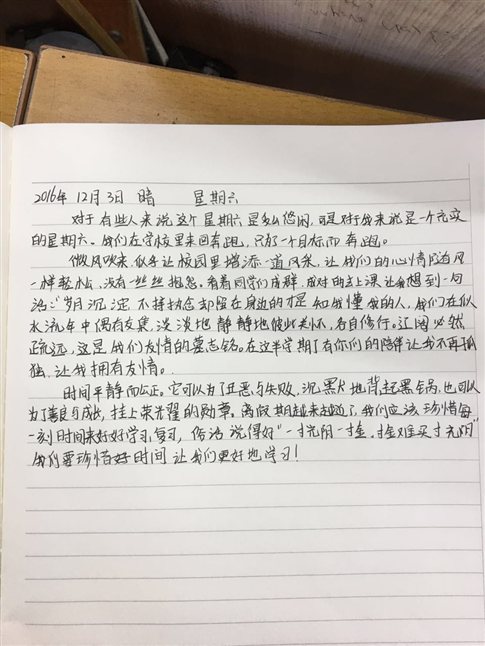 2016年 12月3日 晴 星期六
对于有些人来说这个星期六是多么悠闲，可是对于我来说是一个充实
的星期六。我们在学校里来回奔跑，只为一个目标而奔跑。
微风吹来似乎让校园里增添一道风景，让我们的心情随着风
一样轻松，没有一丝丝抱怨。看着同学们成群，成对的去上课让我想到一句
话："岁月沉淀，不持执念却留在身边的才是知我懂我的人，我们在似
水流年中偶有交集，淡淡地静静地彼此关怀，各自修行。辽阔必然
疏远，这是我们友情的墓志铭。在这半学期了有你们的陪伴让我不再孤
独，让我拥有友情。
时间平静而公正。它可以为了丑恶与失败，沉黑犬地背起黑锅，也可以
为了善良与成功，挂上荣光耀的勋章。离假期越来越近了，我们应该珍惜每
一刻时间来好好学习，复习，俗话说得好"一寸光阴一寸金，寸金难买寸光阴"
我们要珍惜时间让我们更好地学习！